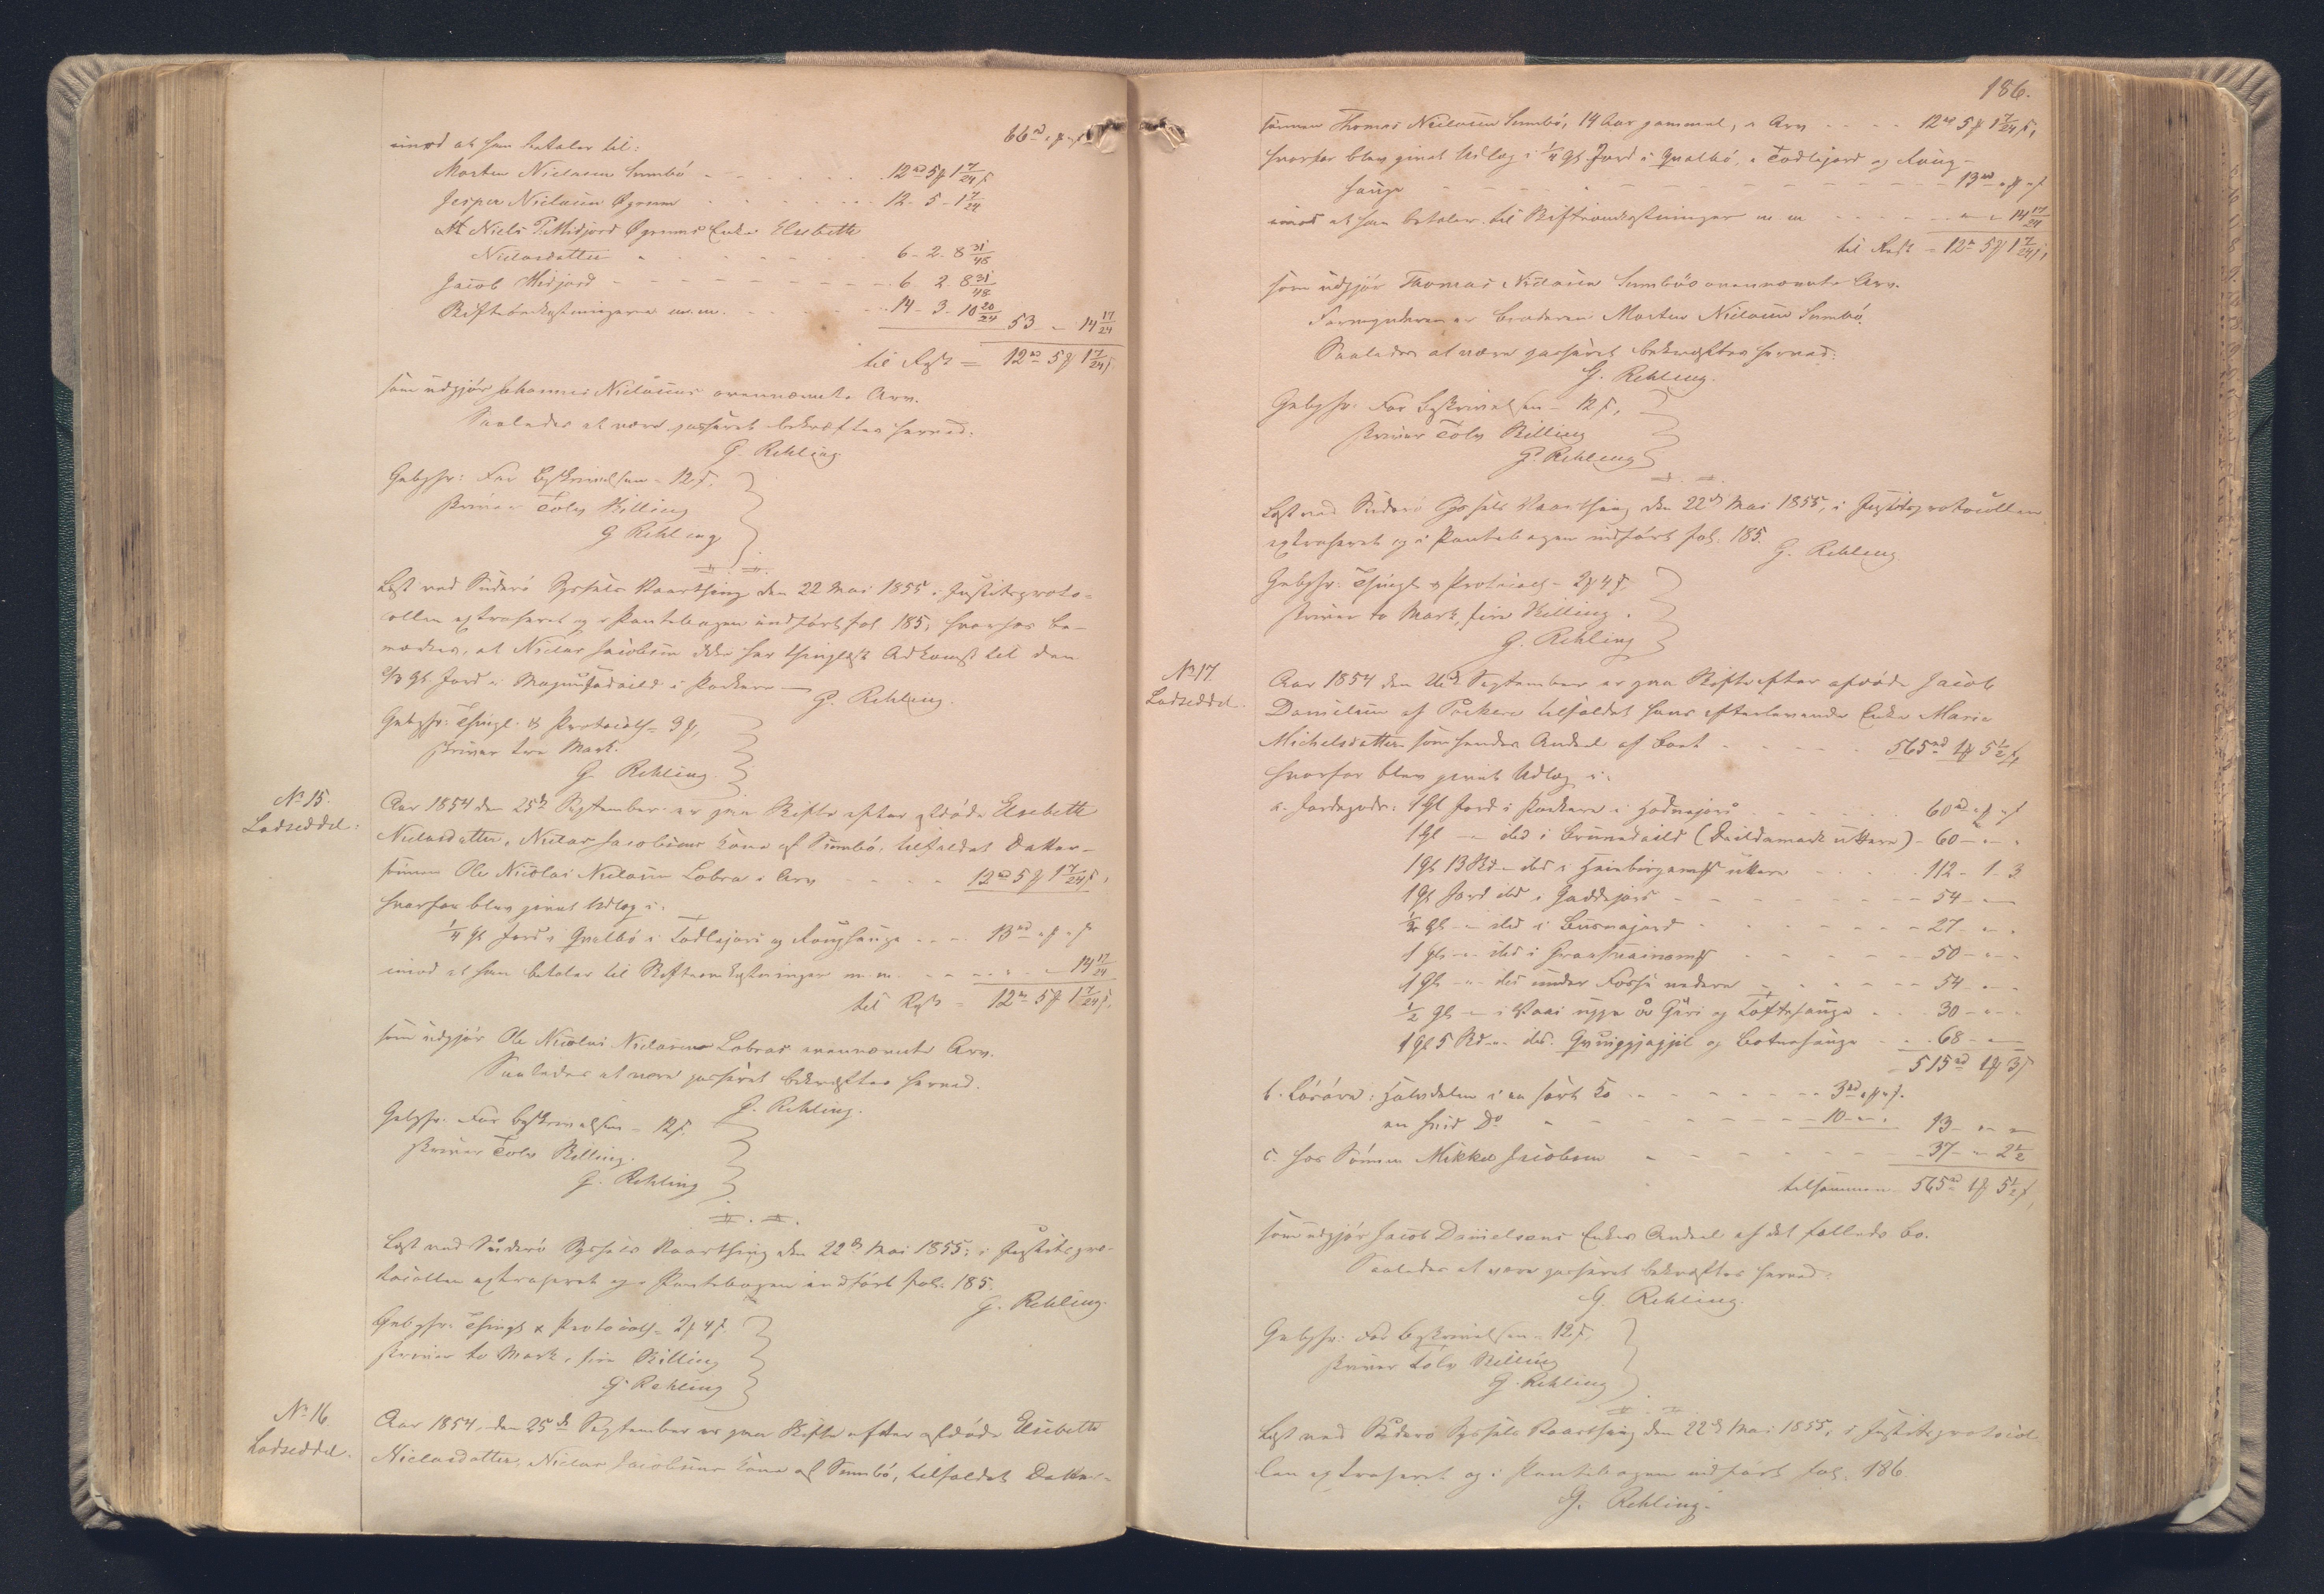 66rd " β " s
imod at han betaler til:
Morten Niclasen Sumbö - - - 12rd 5β 1 7/24 s
Jesper Niclasen Øgrum - - - 12 - 5 - 1 7/24
Niels P. Midjord Øgrums Enke Elsebeth
Niclasdatter - - - 6 - 2 - 8 31/48
Jacob Midjord - - - 6 2 8 31/48
Skifteomkostningerne m.m. - - - 14 - 3 - 10 20/24 53 - " 14 17/24
til Rest = 12rd 5β 1 7/24 s.
som udgjör Johannes Niclasens ovennævnte Arv.
Saaledes at være passeret bekræftes herved.
G. Rehling.
Gebyhr: For Beskrivelsen - 12 s,
skriver Tolv Skilling
G Rehling
Læst ved Suderö Syssels Vaarthing den 22 Mai 1855, i Justitsproto-
collen extraheret og i Pantebogen indfört fol 185, hvorhos be-
mærkes, at Niclas Jacobsen ikke har thinglæst Adkomst til den
Gl. Jord i i Porkere —
G. Rehling.
Gebyhr: Thingl. & Protocoll - 3β,
skriver tre Mark.
G. Rehling.
No 15.
Lodseddel:
Aar 1854 den 25de September er paa Skifte efter afdöde Elsebeth
Niclasdatter, Niclas Jacobsens Kone af Sumbö, tilfaldet Datter-
sönnen Ole Nicolai Niclasen Lobra i Arv - - - 12rd 5β 1 7/24 s,
hvorfor blev givet Udlæg i:
1/4 Gl Jord i Qvalbö i Todlajord og Königshauge - - - 13rd " β " s
imod at han betaler til Skifteomkostninger m.m. - - - 14 17/24
til Rest = 12rd 5β 1 7/24 s.
som udgjör Ole Nicolai Niclasens Lobras ovennævnte Arv.
Saaledes at være passeret bekræftes herved.
G. Rehling.
Gebyhr. For Beskrivelsen - 12 s.
skriver Tolv Skilling.
G. Rehling
Læst ved Suderö Syssels Vaarthing den 22de Mai 1855, i Justitspro-
tocollen extraheret og i Pantebogen indfört fol. 185.
G. Rehling.
Gebyhr. Thingl & Protocoll - 2β 4 s
skriver to Mark, fire Skilling
G. Rehling
No 16.
Lodseddel.
Aar 1854, den 25de September er paa Skifte efter afdöde Elsebeth
Niclasdatter, Niclas Jacobsens Kone af Sumbö, tilfaldet Datter-
186.
sönnen Thomas Niclasen Sumbö, 14 Aar gammel, i Arv - - - 12rd 5β 1 7/24 s,
hvorfor blev givet Udlæg i 1/4 Gl. Jord i Qvalbö, i Todlajord og Königs-
hauge - - - 13rd " β " s
imod at han betaler til Skifteomkostninger m m - - - 14 17/24
til Rest = 12rd 5β 1 7/24 s,
som udgjör Thomas Niclasen Sumbös ovennævnte Arv.
Formynderen er Broderen Morten Niclasen Sumbö.
Saaledes at være passeret bekræftes herved:
G. Rehling.
Gebyhr. For Beskrivelsen - 12 s,
skriver Tolv Skilling
G. Rehling
Læst ved Suderö Syssels Vaarthing den 22de Mai 1855, i Justitsprotocollen
extraheret og i Pantebogen indfört fol. 185.
G. Rehling.
Gebyhr: Thingl & Protocoll - 2β 4 s,
skriver to Mark, fire Skilling.
G. Rehling
No 17.
Lodseddel.
Aar 1854 den September er paa Skifte efter afdöde Jacob
Danielsen af Porkere tilfaldet hans efterlevende Enke Marie
Michelsdatter som hendes Andeel af Boet - - - 565rd 1β 5 1/2 s,
hvorfor blev givet Udlæg i:
a. Jordegods: 1 Gl Jord i Porkere i - - - 60rd " β " s
1 Gl - " ibd i (Deildamark uttare) - 60 - " - "
1 Gl 13 Sk - " ibd i uttare - - - 112 - 1 - 3
1 Gl Jord ibd i - - - 54 - " -
1/2 Gl - " ibd i - - - 27 - " - "
1 Gl - " - ibd i - - - 50 - " - "
1 Gl - " - ibd under Forsá nedara - - - 54 - " - "
1/2 Gl - " i Vaai uppa og - - - 30 - " - "
1 Gl 5 Sk - " - ibd. og - - - 68 - " -
515rd 1β 3 s
b. Lösöre: Halvdelen i en sort Ko - - - 3rd " β " s.
en hvid Do - - - 10 - " - " 13 - " - "
c. hos Sönnen Mikkel Jacobsen - - - 37 - " - 2 1/2
tilsammen 565rd 1β 5 1/2 s,
som udgjör Jacob Danielsens Enkes Andeel af det fælleds Bo.
Saaledes at være passeret bekræftes herved:
G. Rehling.
Gebyhr: For Beskrivelsen - 12 s,
skriver Tolv Skilling
G. Rehling
Læst ved Suderö Syssels Vaarthing den 22de Mai 1855, i Justitsprotocol-
len extraheret og i Pantebogen indfört fol. 186.
G. Rehling.